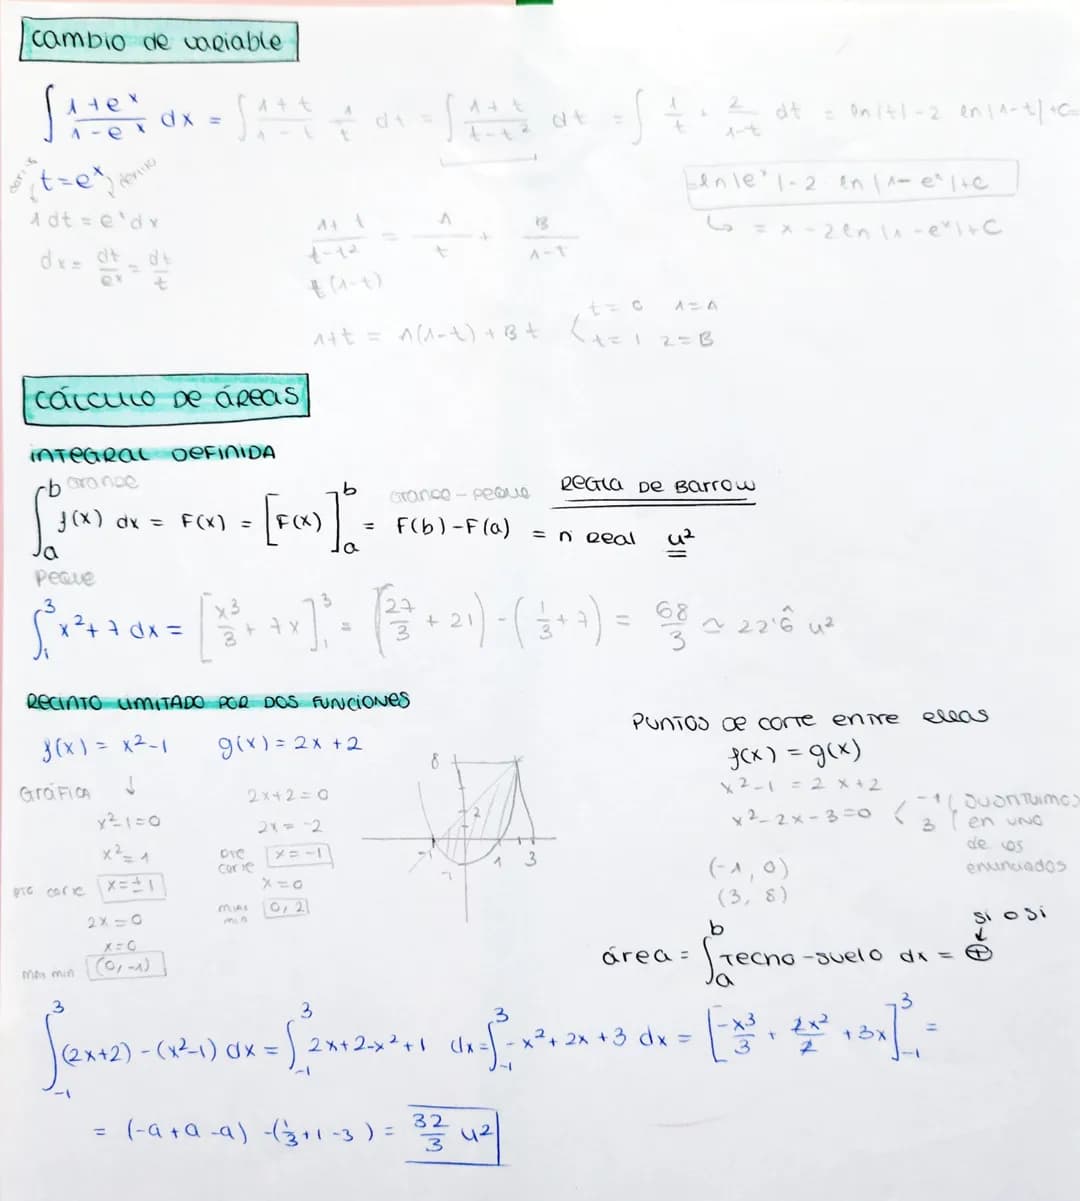 cambio de variable
∫ 1+e^x / 1-e^x dx = ∫ 1+t / 1-t · 1/t dt = ∫ 1+t / t-t² dt = ∫ 1/t + 2/1-t dt = ln|t| -2 ln|1-t|+C=
t=e^x
1 dt = e^x dx
dx = dt/e^x = dt/t
= ln|e^x| -2 ln|1-e^x|+C
↳ = x -2 ln|1-e^x|+C
1+t / t-t² = A/t + B/1-t
t(1-t)
1+t = A(1-t) + Bt < t=0 1=A
t=1 2=B
CÁLCULO DE ÁREAS
INTEGRAL DEFINIDA
grande
∫_a^b f(x) dx = F(x) = [F(x)]_a^b = F(b)-F(a) = nº real u²
grande - peque
REGLA DE BARROW
peque
∫_1^3 x²+7 dx = [x³/3 + 7x]_1^3 = (27/3 + 21) - (1/3 + 7) = 68/3 ≃ 22'6̂ u²
RECINTO LIMITADO POR DOS FUNCIONES
f(x) = x²-1 g(x) = 2x+2
GRÁFICA ↓
x²-1=0
x²=1
pto corte x=±1
2x=0
x=0
max min (0,-1)
2x+2=0
2x=-2
pto corte x=-1
x=0
max min 0,2
8
2
-1
1
3
-1
PUNTOS DE CORTE ENTRE ELLAS
f(x) = g(x)
x²-1 = 2x+2
x²-2x-3=0 < -1
3
sustituimos
en uno
de los
enunciados
(-1, 0)
(3, 8)
área = ∫_a^b TECHO-SUELO dx = ⊕
si o si
↓
∫_-1^3 (2x+2)-(x²-1) dx = ∫_-1^3 2x+2-x²+1 dx = ∫_-1^3 -x²+2x+3 dx = [-x³/3 + 2x²/2 +3x]_-1^3 =
= (-9+9-9) -(1/3+1-3) = 32/3 u²